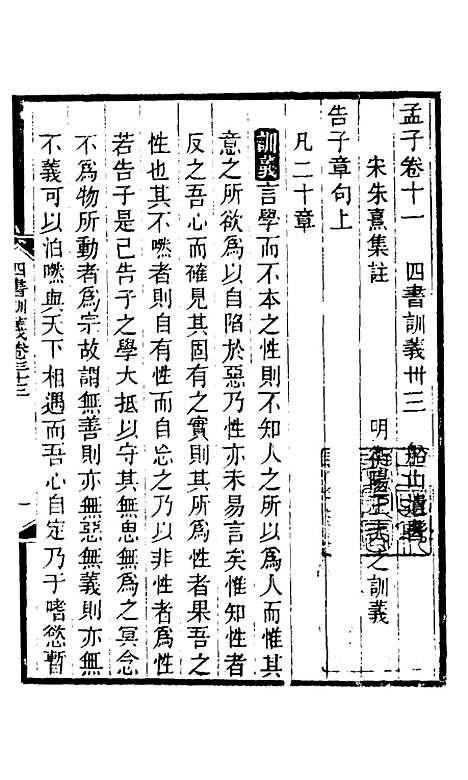 孟子卷十一　四書訓義卅三　船山遺書
宋朱熹集註　明衡陽王夫之訓義
告子章句上
凡二十章
訓義言學而不本之性則不知人之所以為人而惟其
意之所欲為以自陷於惡乃性亦未易言矣惟知性者
反之吾心而確見其固有之實則其所性者果吾之
性也其不然者則自有性而自忘之乃以非性者為性
若告子是已告子之學大抵以守其無思無為之冥念
不為物所動者為宗故謂無善則亦無惡無義則亦無
不義可以泊然與天下相遇而吾心自定乃于嗜慾暫
四書訓義卷三十三
一